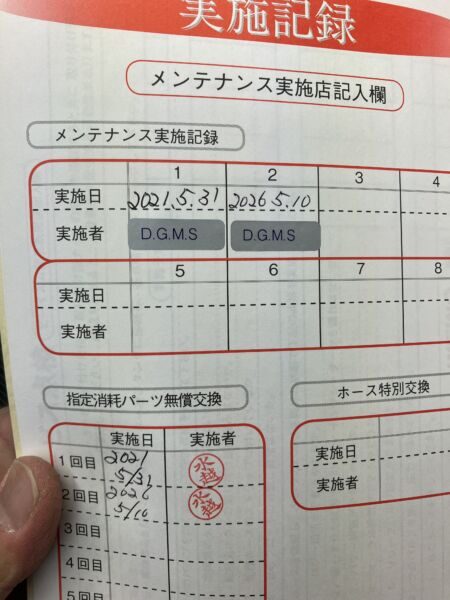 実施記録
メンテナンス実施店記入欄
メンテナンス実施記録
1 2 3 4
実施日 2021.5.31 2026 5.10
実施者 D.G.M.S D.G.M.S
5 6 7 8
実施日
実施者
指定消耗パーツ無償交換
実施日 実施者
1回目 2021 5/31 水越
2回目 2026 5/10 水越
3回目
4回目
5回目
ホース特別交換
実施日
実施者